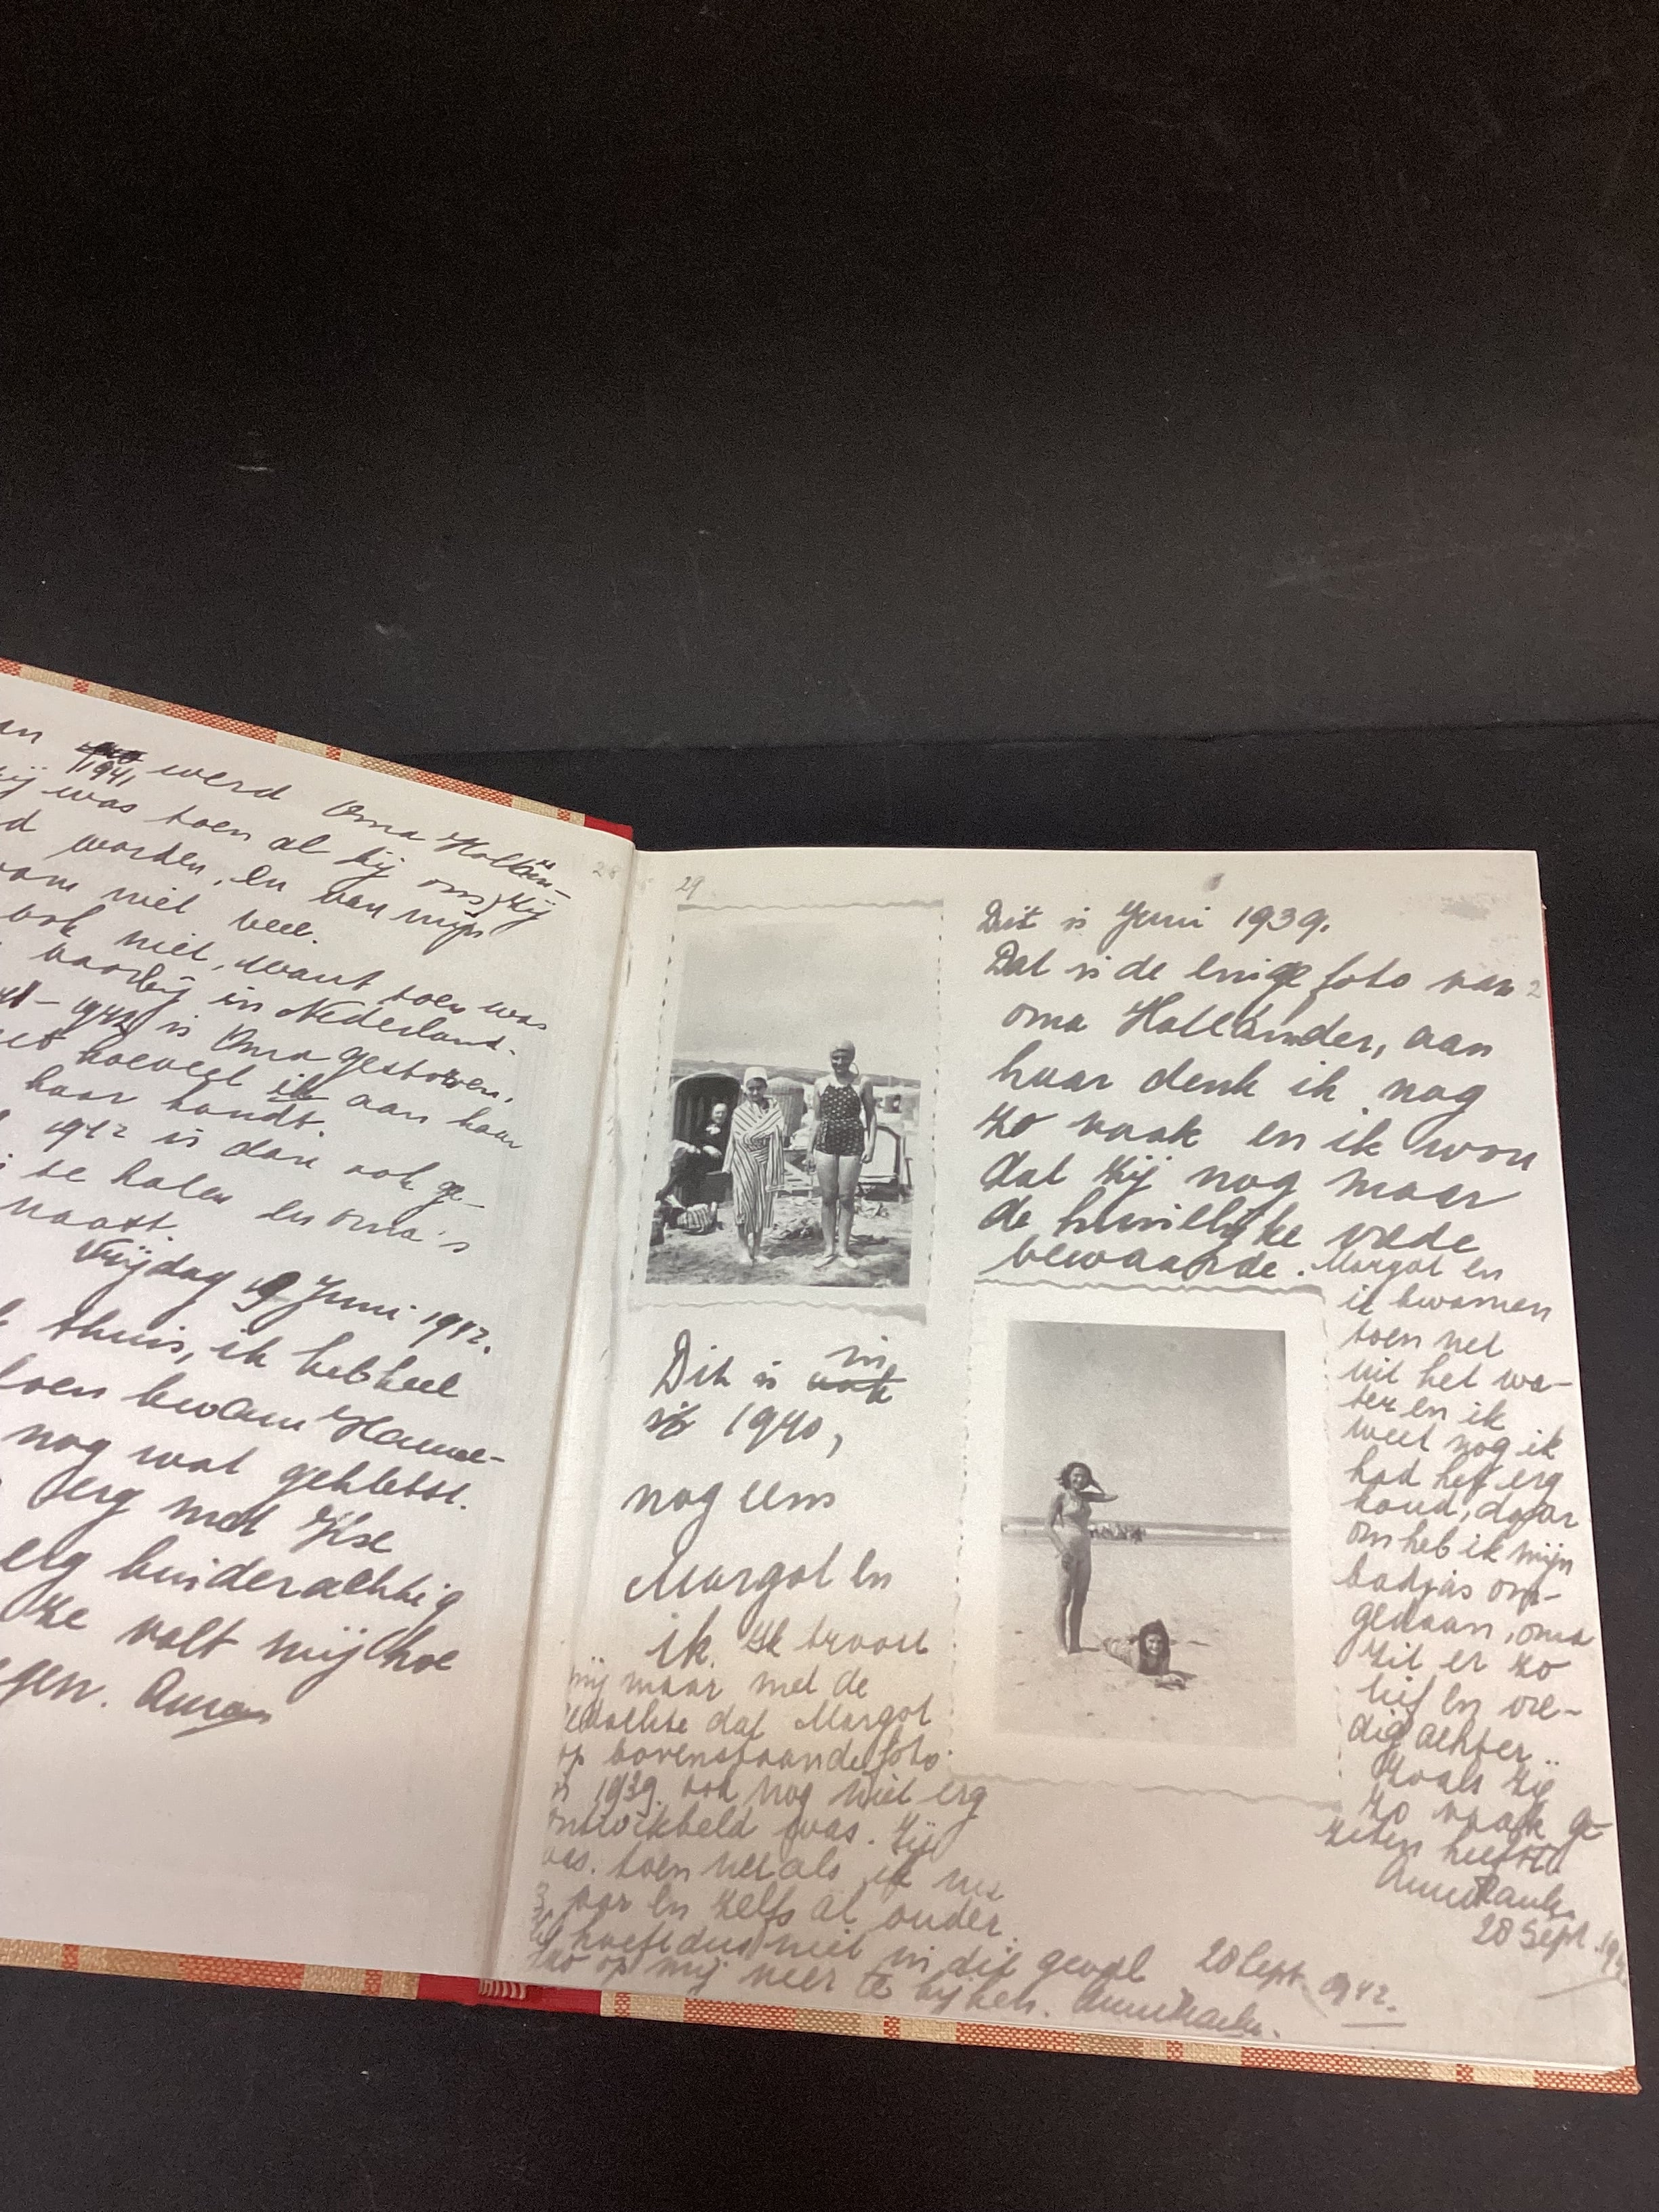 1941 werd Oma Hollän-
was toen al bij ons) zij
worden, en van mijn
niet veel.
ook niet, want toen was
voorbij in Nederland.
1942 is Oma gestorven,
hoeveel ik aan haar
haar houdt.
1942 is dan ook ge-
te halen en oma's
naast.
Vrijdag 19 Juni 1942.
thuis, ik heb heel
toen kwam Hanne-
nog wat gekletst.
erg met Ilse
erg kinderachtig
ze valt mij hoe
gen. Anne
28
29
Dit is Juni 1939.
Dat is de enige foto van
oma Holländer, aan
haar denk ik nog
zo vaak en ik wou
dat zij nog maar
de huiselijke vrede
bewaarde. Margot en
ik kwamen
toen net
uit het wa-
ter en ik
weet nog ik
had het erg
koud, daar
om heb ik mijn
badjas om-
gedaan, oma
zit er zo
lief en vre-
dig achter..
Zoals zij
zo vaak ge-
zeten heeft
Anne Frank.
28 Sept. 194
Dit is in ook
1940,
nog eens
Margot en
ik. Ik troost
mij maar met de
gedachte dat Margot
op bovenstaande foto
in 1939. ook nog niet erg
ontwikkeld was. Zij
was. toen net als ik nu
13 jaar en zelfs al ouder.
Zij hoeft dus niet in dit geval 28 Sept. 1942.
zo op mij neer te kijken. Anne Frank.